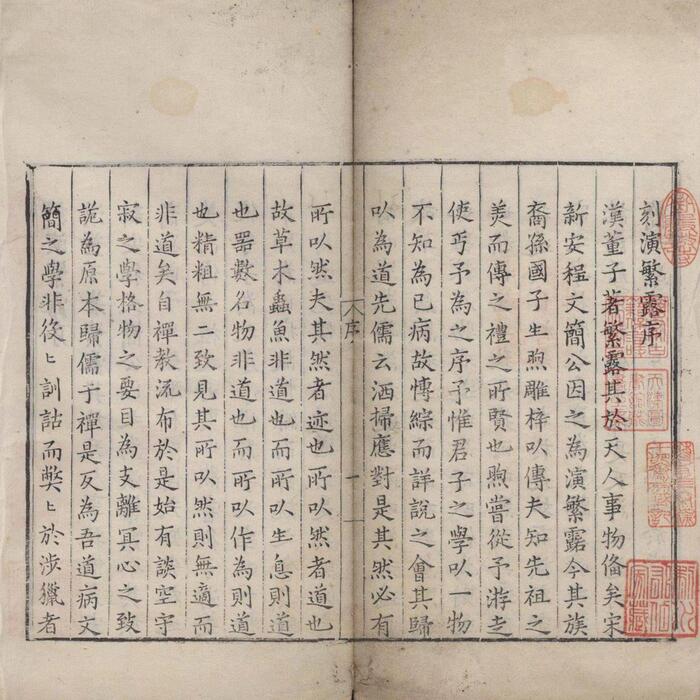 刻演繁露序
漢董子著繁露其於天人事物俻矣宋
新安程文簡公因之為演繁露今其族
裔孫國子生煦雕梓以傳夫知先祖之
羙而傳之禮之所賢也煦嘗從予游走
使丐予為之序予惟君子之學以一物
不知為已病故愽綜而詳說之會其歸
以為道先儒云洒掃應對是其然必有
序
一
所以然夫其然者迹也所以然者道也
故草木蟲魚非道也而所以生息則道
也噐數名物非道也而所以作為則道
也精粗無二致見其所以然則無適而
非道矣自禪教流布於是始有談空守
寂之學格物之要目為支離冥心之致
詭為原本歸儒于禪是反為吾道病文
簡之學非役匕訓詁而獘匕於涉獵者